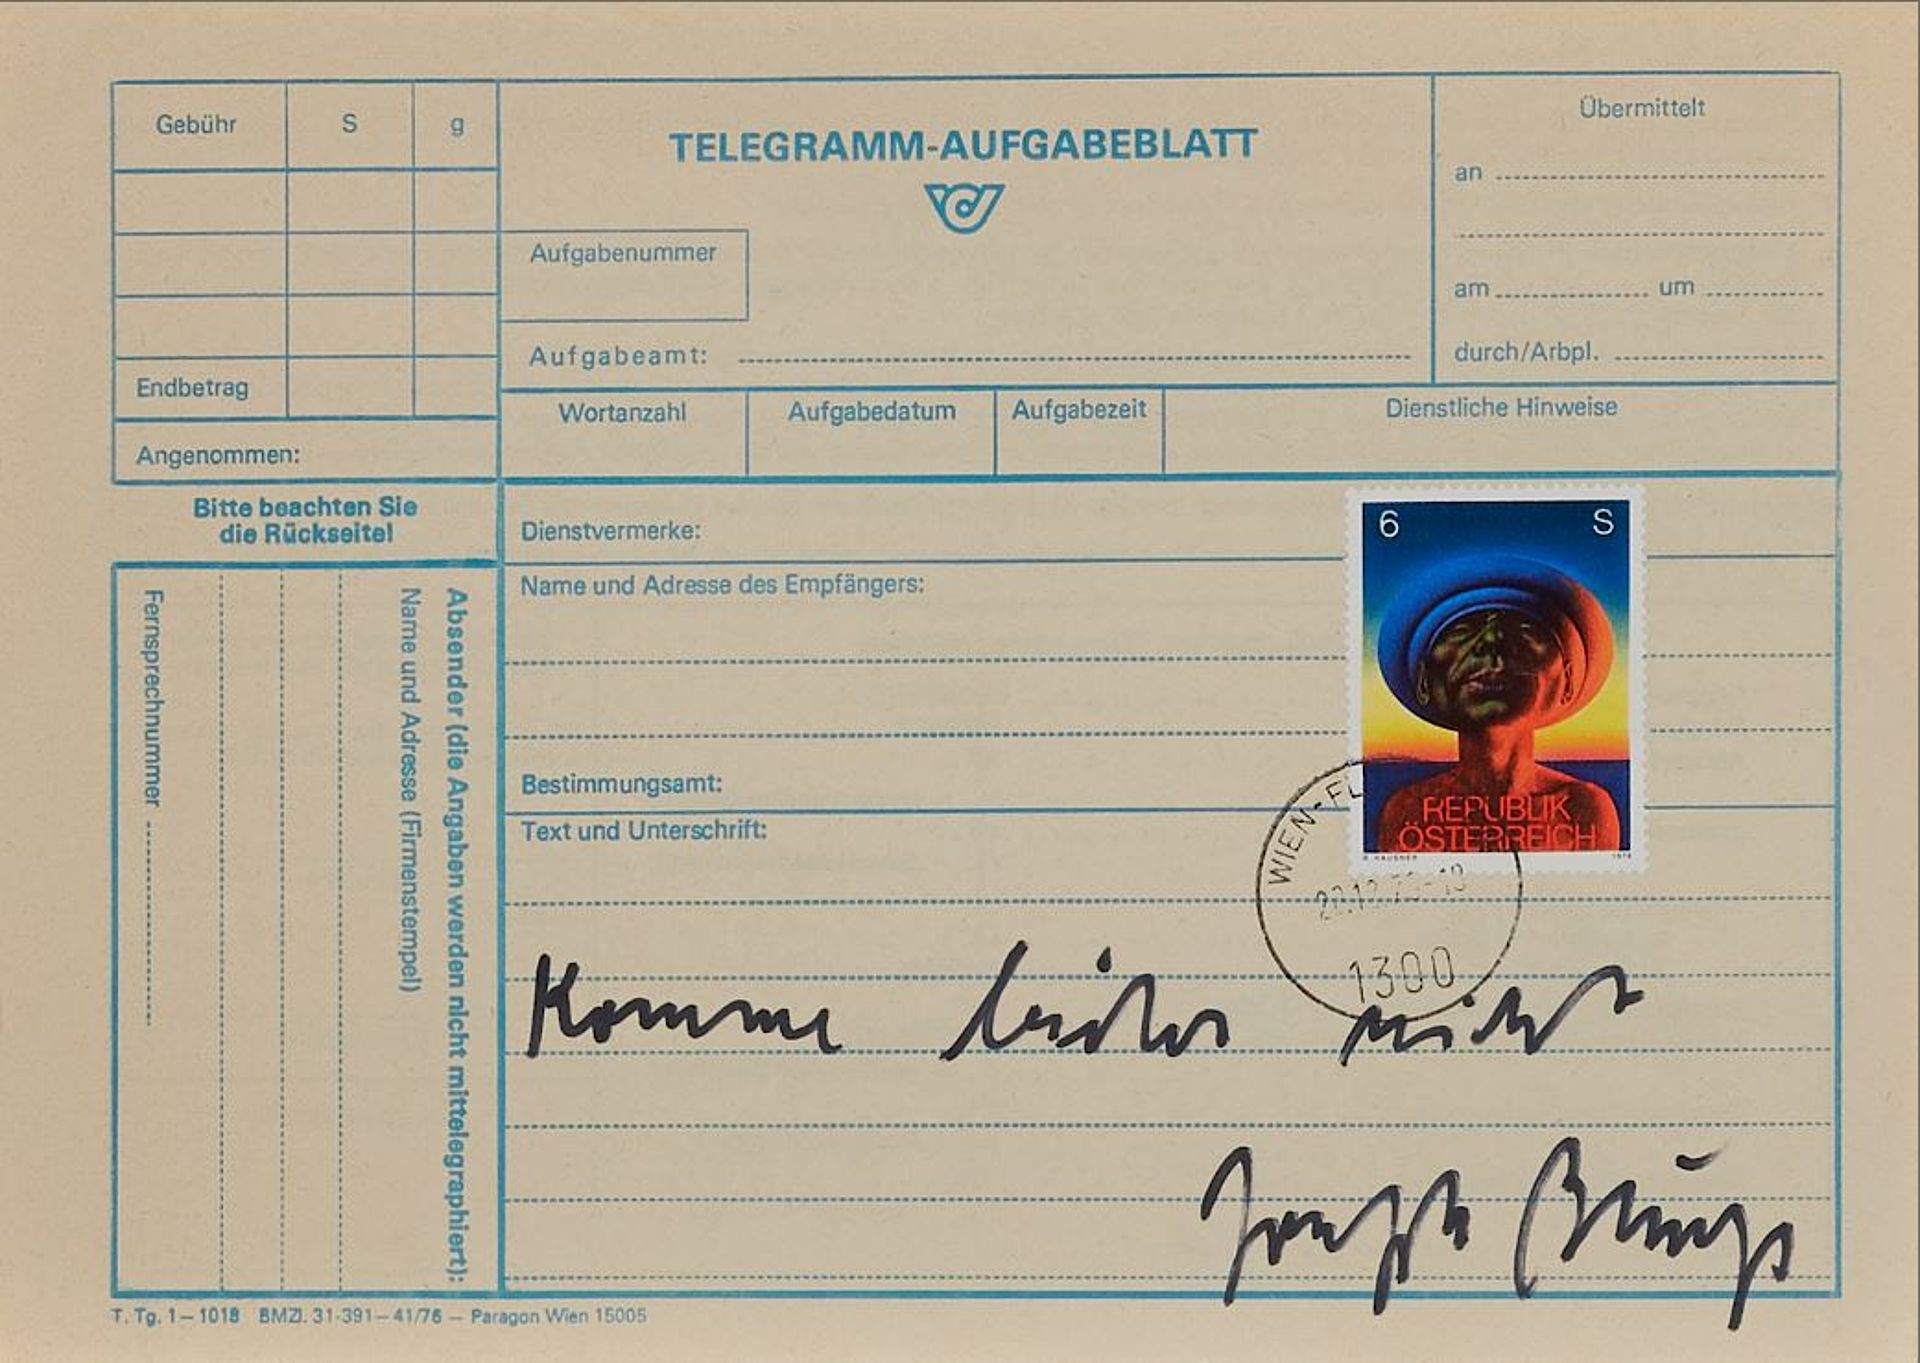 Gebühr S g
TELEGRAMM-AUFGABEBLATT
Übermittelt
an
am um
durch/Arbpl.
Aufgabenummer
Aufgabeamt:
Endbetrag
Angenommen:
Wortanzahl Aufgabedatum Aufgabezeit Dienstliche Hinweise
Bitte beachten Sie
die Rückseite!
Absender (die Angaben werden nicht mittelegraphiert):
Name und Adresse (Firmenstempel)
Fernsprechnummer
Dienstvermerke:
Name und Adresse des Empfängers:
Bestimmungsamt:
Text und Unterschrift:
6 S
REPUBLIK
ÖSTERREICH
R. HAUSNER 1978
WIEN-FL
1300
Komme leider nicht
Joseph Beuys
T. Tg. 1–1018 BMZl. 31-391–41/76 — Paragon Wien 15005